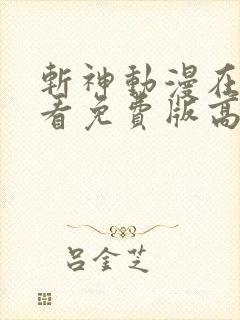 斬神動漫在
看免費版高
呂金芝